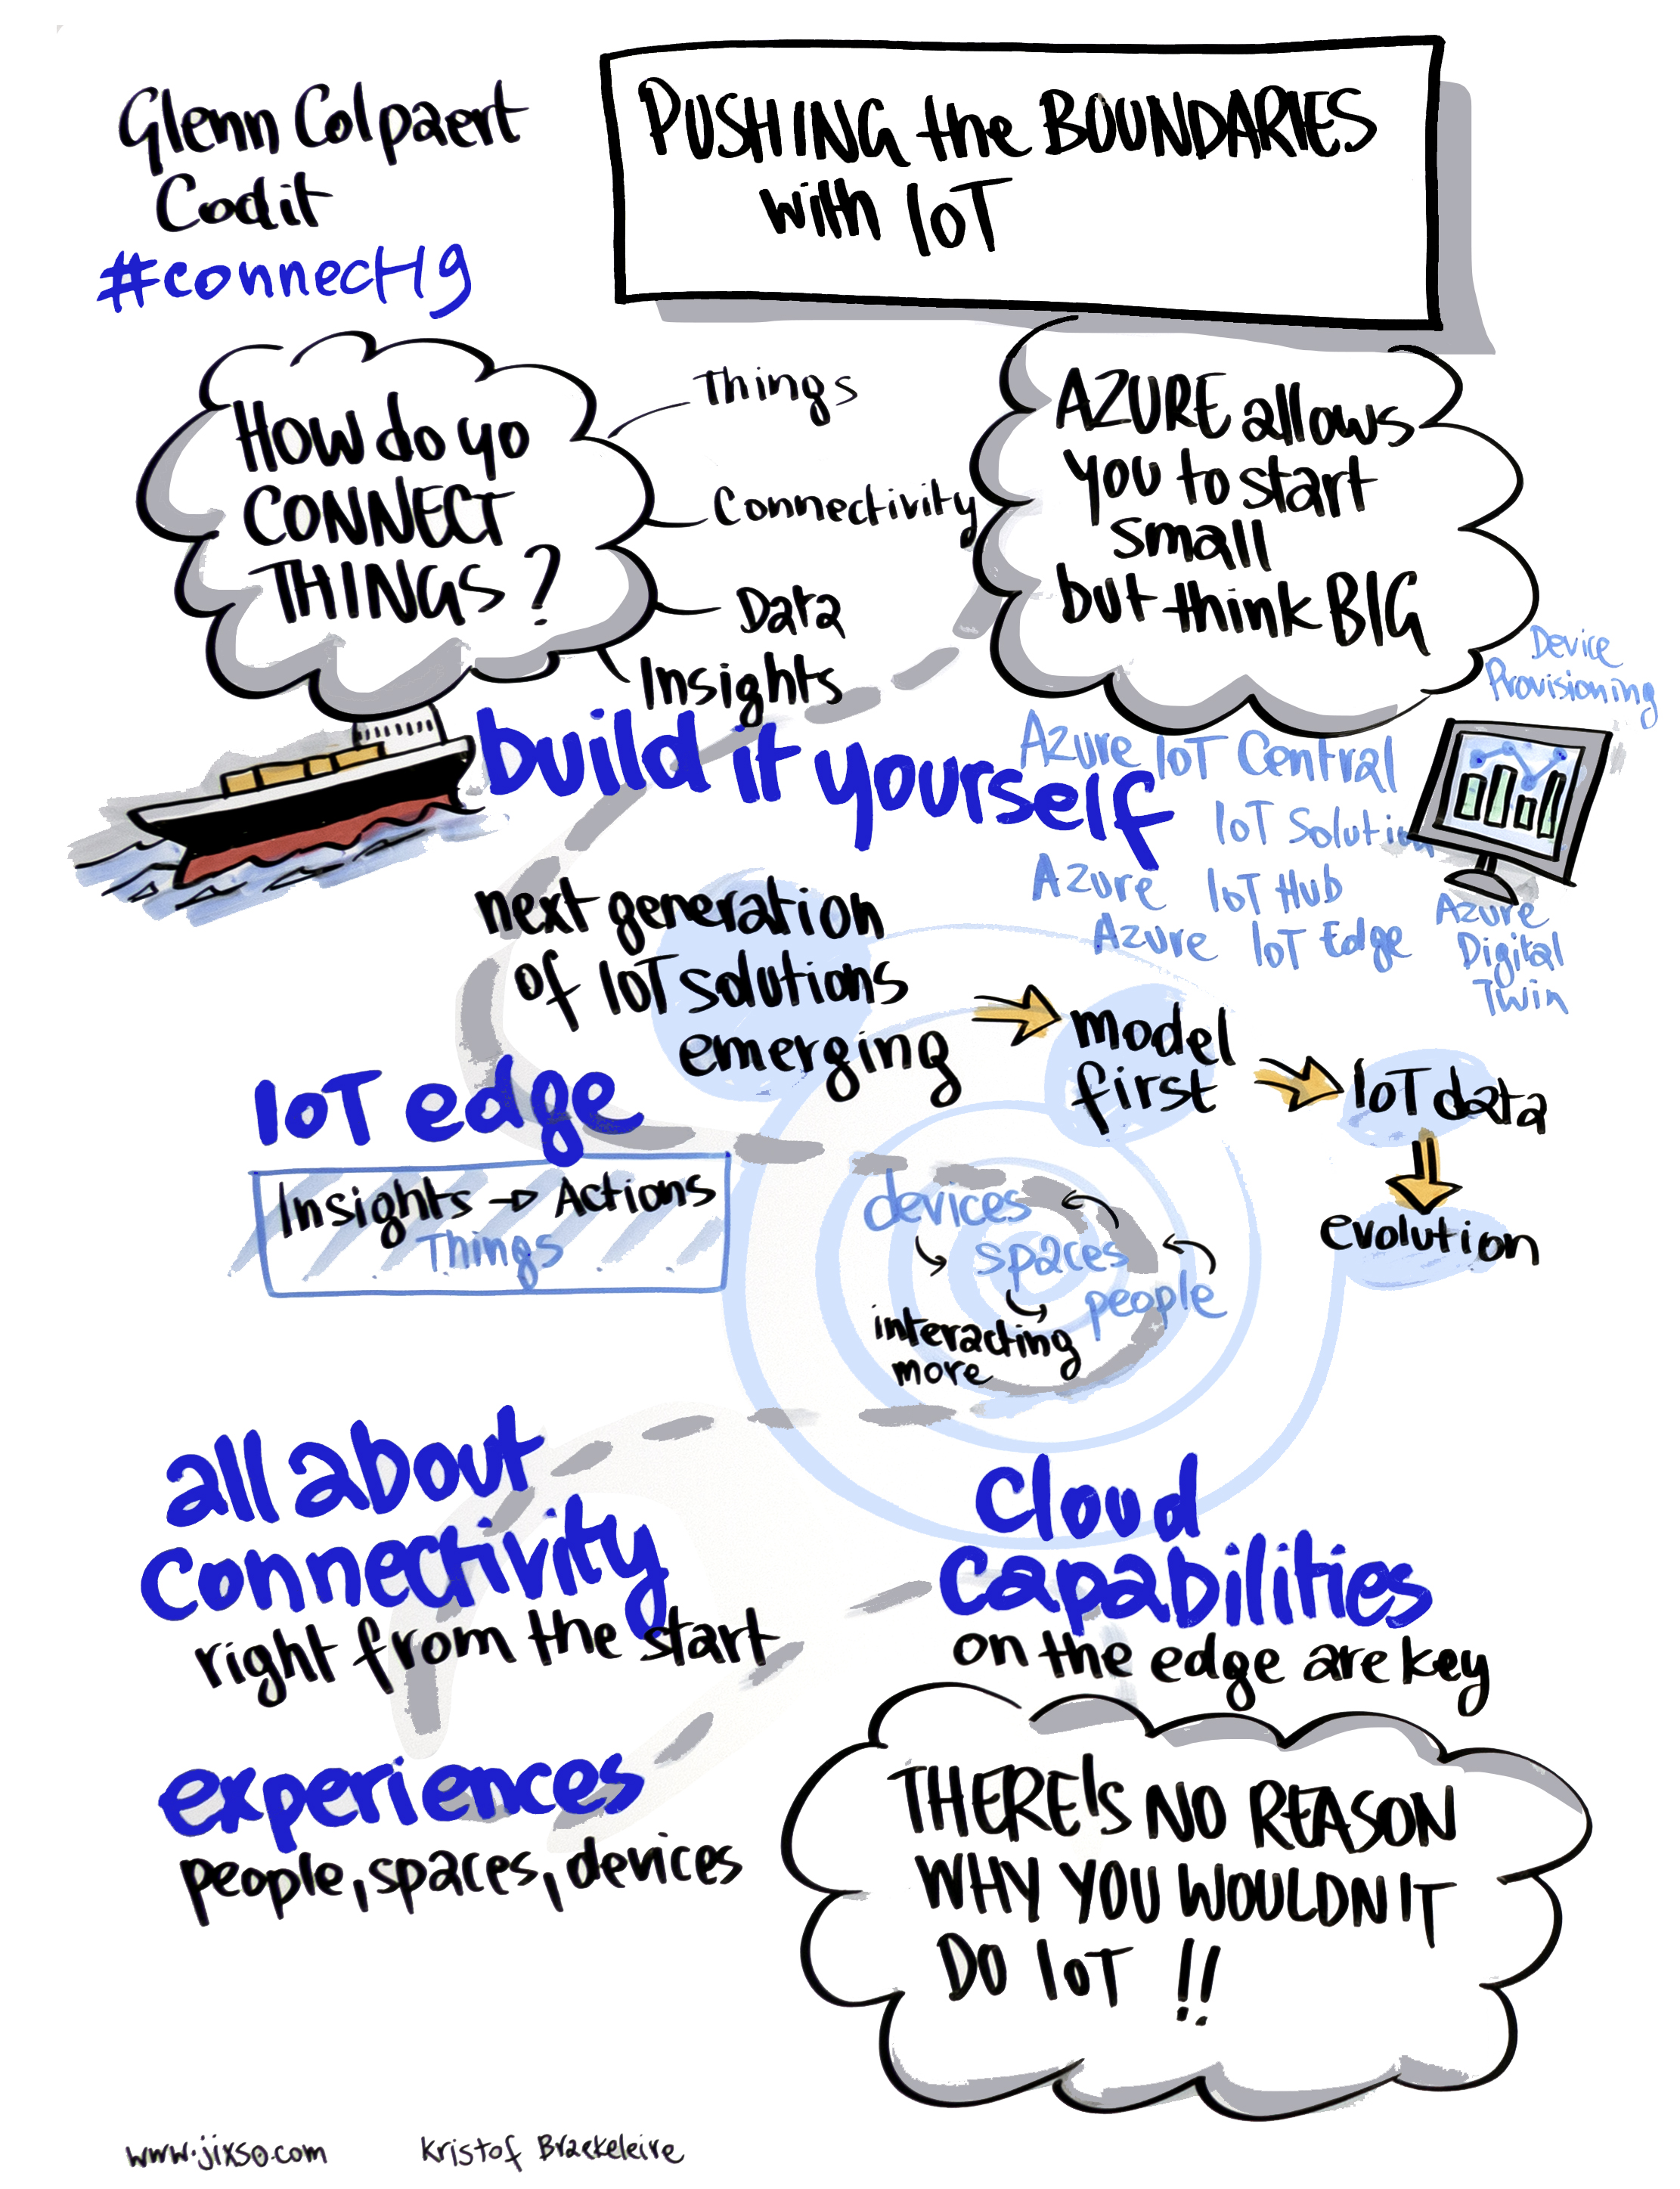 Glenn Colpaert
Codit
#connect19
PUSHING the BOUNDARIES
with IoT
HOW do yo
CONNECT
THINGS ?
Things
Connectivity
Data
Insights
AZURE allows
you to start
small
but think BIG
Device
Provisioning
build it yourself
Azure IoT Central
IoT Solution
Azure IoT Hub
Azure IoT Edge
Azure
Digital
Twin
next generation
of IoT solutions
emerging
model
first
IoT data
evolution
IoT edge
Insights → Actions
Things
devices
spaces
people
interacting
more
all about
Connectivity
right from the start
Cloud
Capabilities
on the edge are key
experiences
people, spaces, devices
THERE'S NO REASON
WHY YOU WOULDN'T
DO IoT !!
www.jixso.com
Kristof Braekeleire